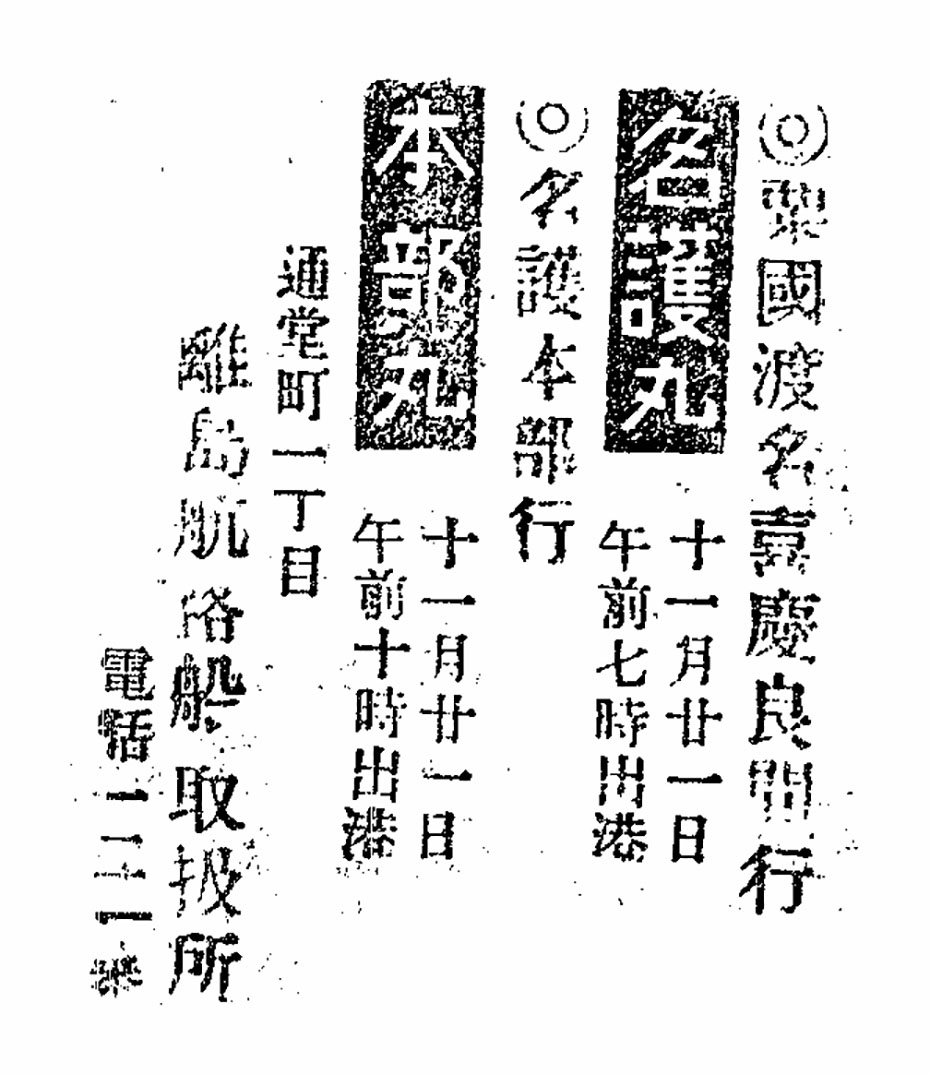 ◎粟國渡名喜慶良間行
名護丸
十一月廿一日
午前七時出港
◎名護本部行
本部丸
十一月廿一日
午前十時出港
通堂町一丁目
離島航路船取扱所
電話